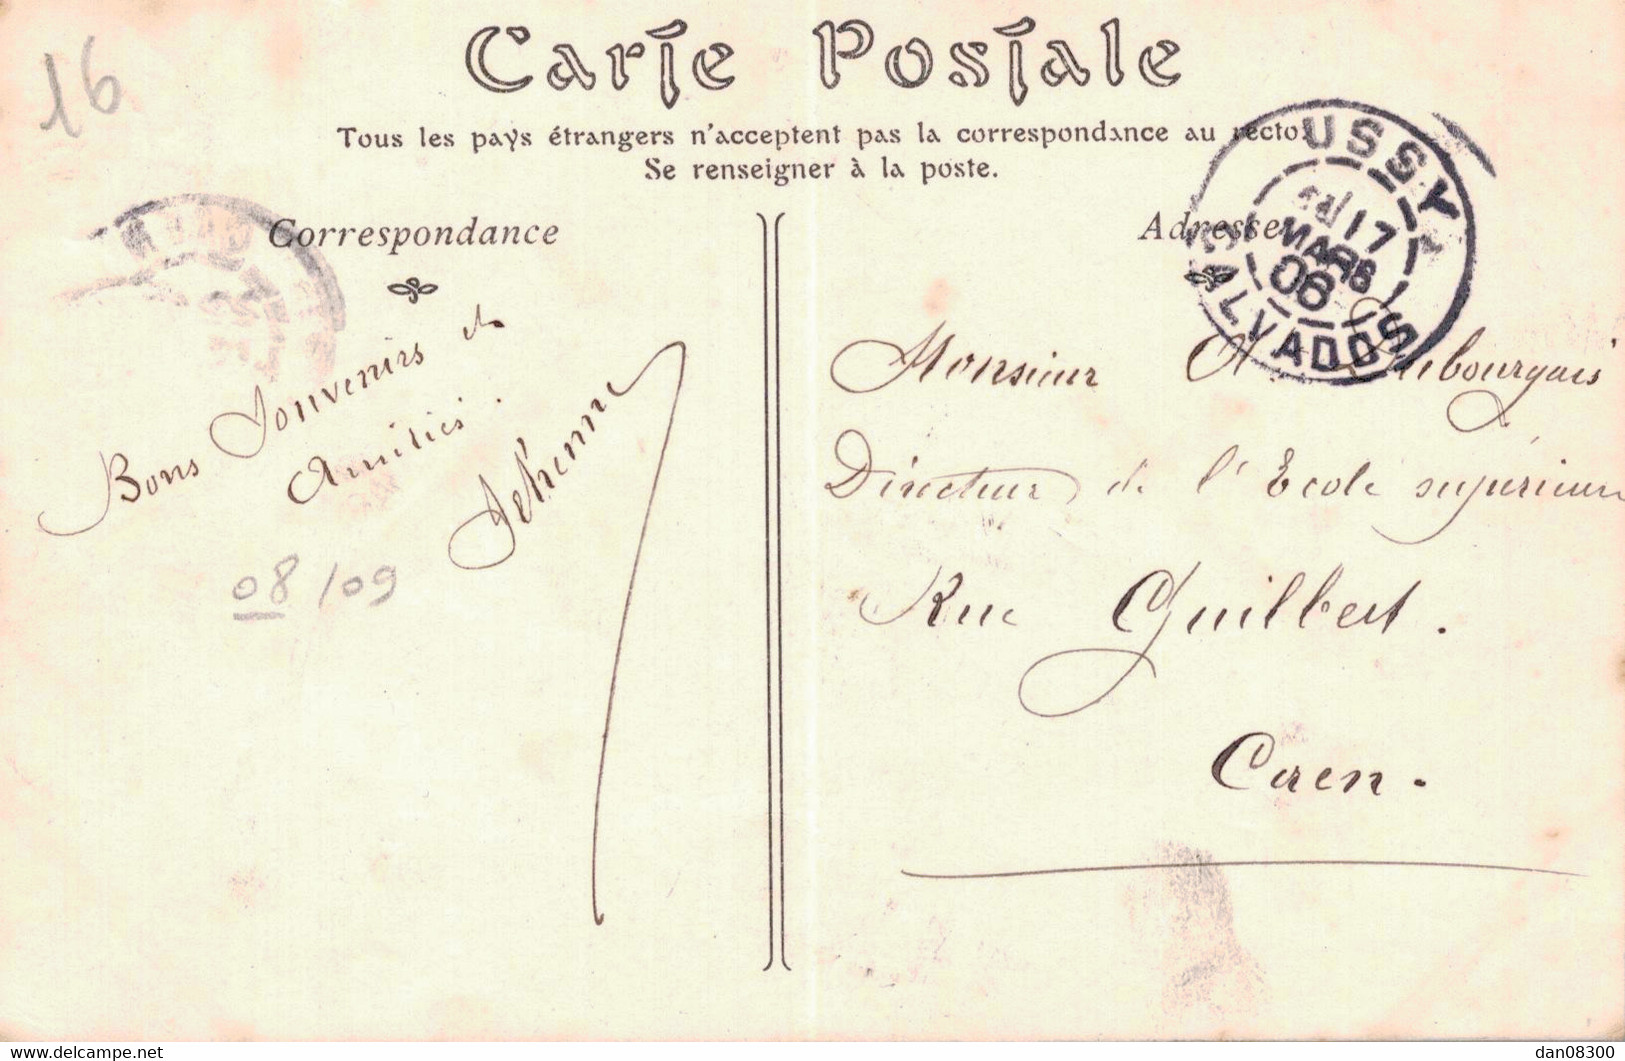 16
Carte Postale
Tous les pays étrangers n'acceptent pas la correspondance au recto
Se renseigner à la poste.
USSY
17
MARS
08
CALVADOS
Correspondance
Adresse
Bons Souvenirs et
Amitiés.
Jehenne
08/09
Monsieur Dubourgais
Directeur de l'Ecole supérieure
Rue Guilbert.
Caen.
dan08300